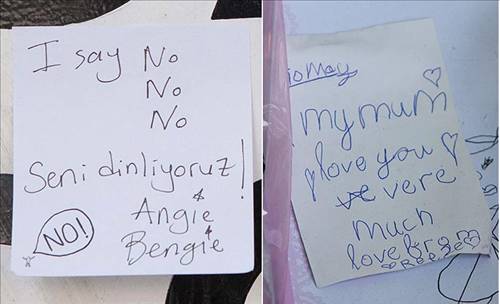 I say No
No
No
Seni dinliyoruz!
Angie
Bengie
NO!
my mum
I love you
vere
much
love from